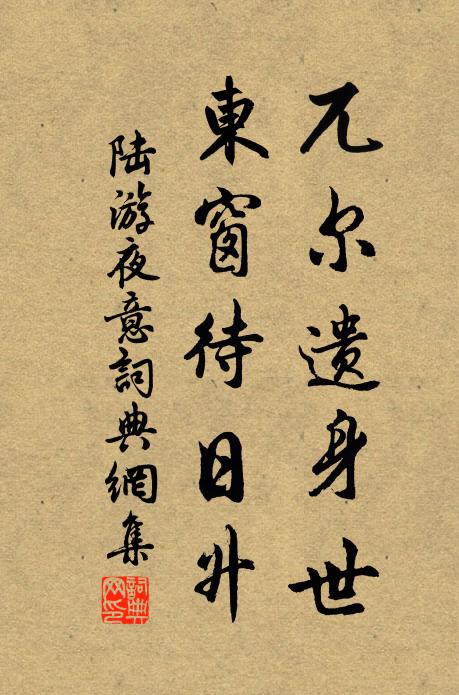 兀尔遗身世
東窗待日升
陆游夜意詞典網集
詞典网印